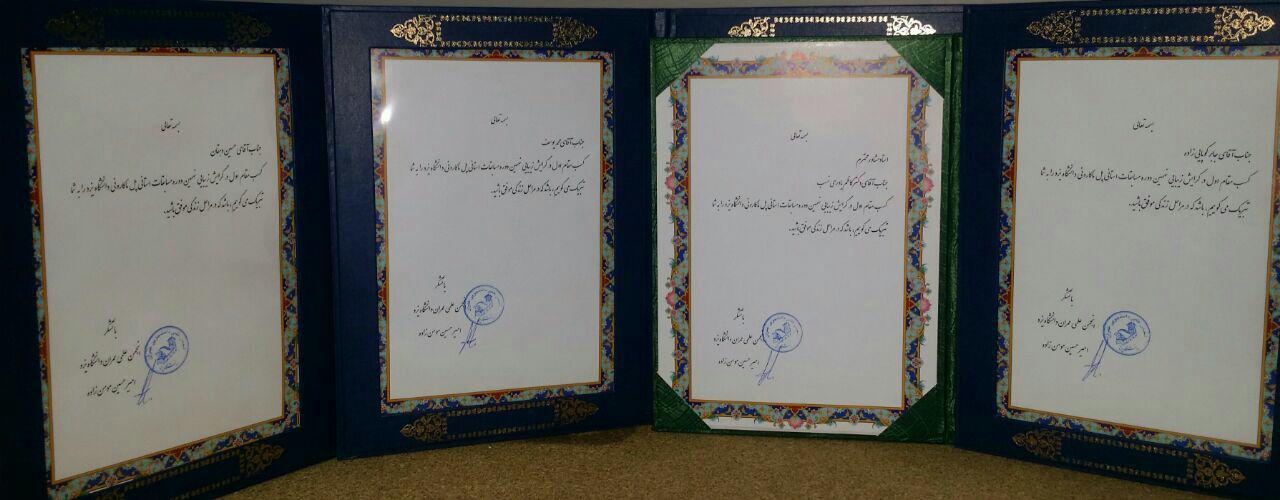 بسمه تعالی
جناب آقای حسین دهقان
کسب مقام اول در گرایش زیبایی نهمین دوره مسابقات استانی پل ماکارونی دانشگاه یزد را به شما
تبریک می گوییم، باشد که در مراحل زندگی موفق باشید.
با تشکر
انجمن علمی عمران دانشگاه یزد
امیر حسین مومن زاده
بسمه تعالی
جناب آقای محمد یوسف
کسب مقام اول در گرایش زیبایی نهمین دوره مسابقات استانی پل ماکارونی دانشگاه یزد را به شما
تبریک می گوییم، باشد که در مراحل زندگی موفق باشید.
با تشکر
انجمن علمی عمران دانشگاه یزد
امیر حسین مومن زاده
بسمه تعالی
استاد مشاور محترم
جناب آقای دکتر کاظم یاوری نسب
کسب مقام اول در گرایش زیبایی نهمین دوره مسابقات استانی پل ماکارونی دانشگاه یزد را به شما
تبریک می گوییم، باشد که در مراحل زندگی موفق باشید.
با تشکر
انجمن علمی عمران دانشگاه یزد
امیر حسین مومن زاده
بسمه تعالی
جناب آقای جابر کوپائی زاده
کسب مقام اول در گرایش زیبایی نهمین دوره مسابقات استانی پل ماکارونی دانشگاه یزد را به شما
تبریک می گوییم، باشد که در مراحل زندگی موفق باشید.
با تشکر
انجمن علمی عمران دانشگاه یزد
امیر حسین مومن زاده